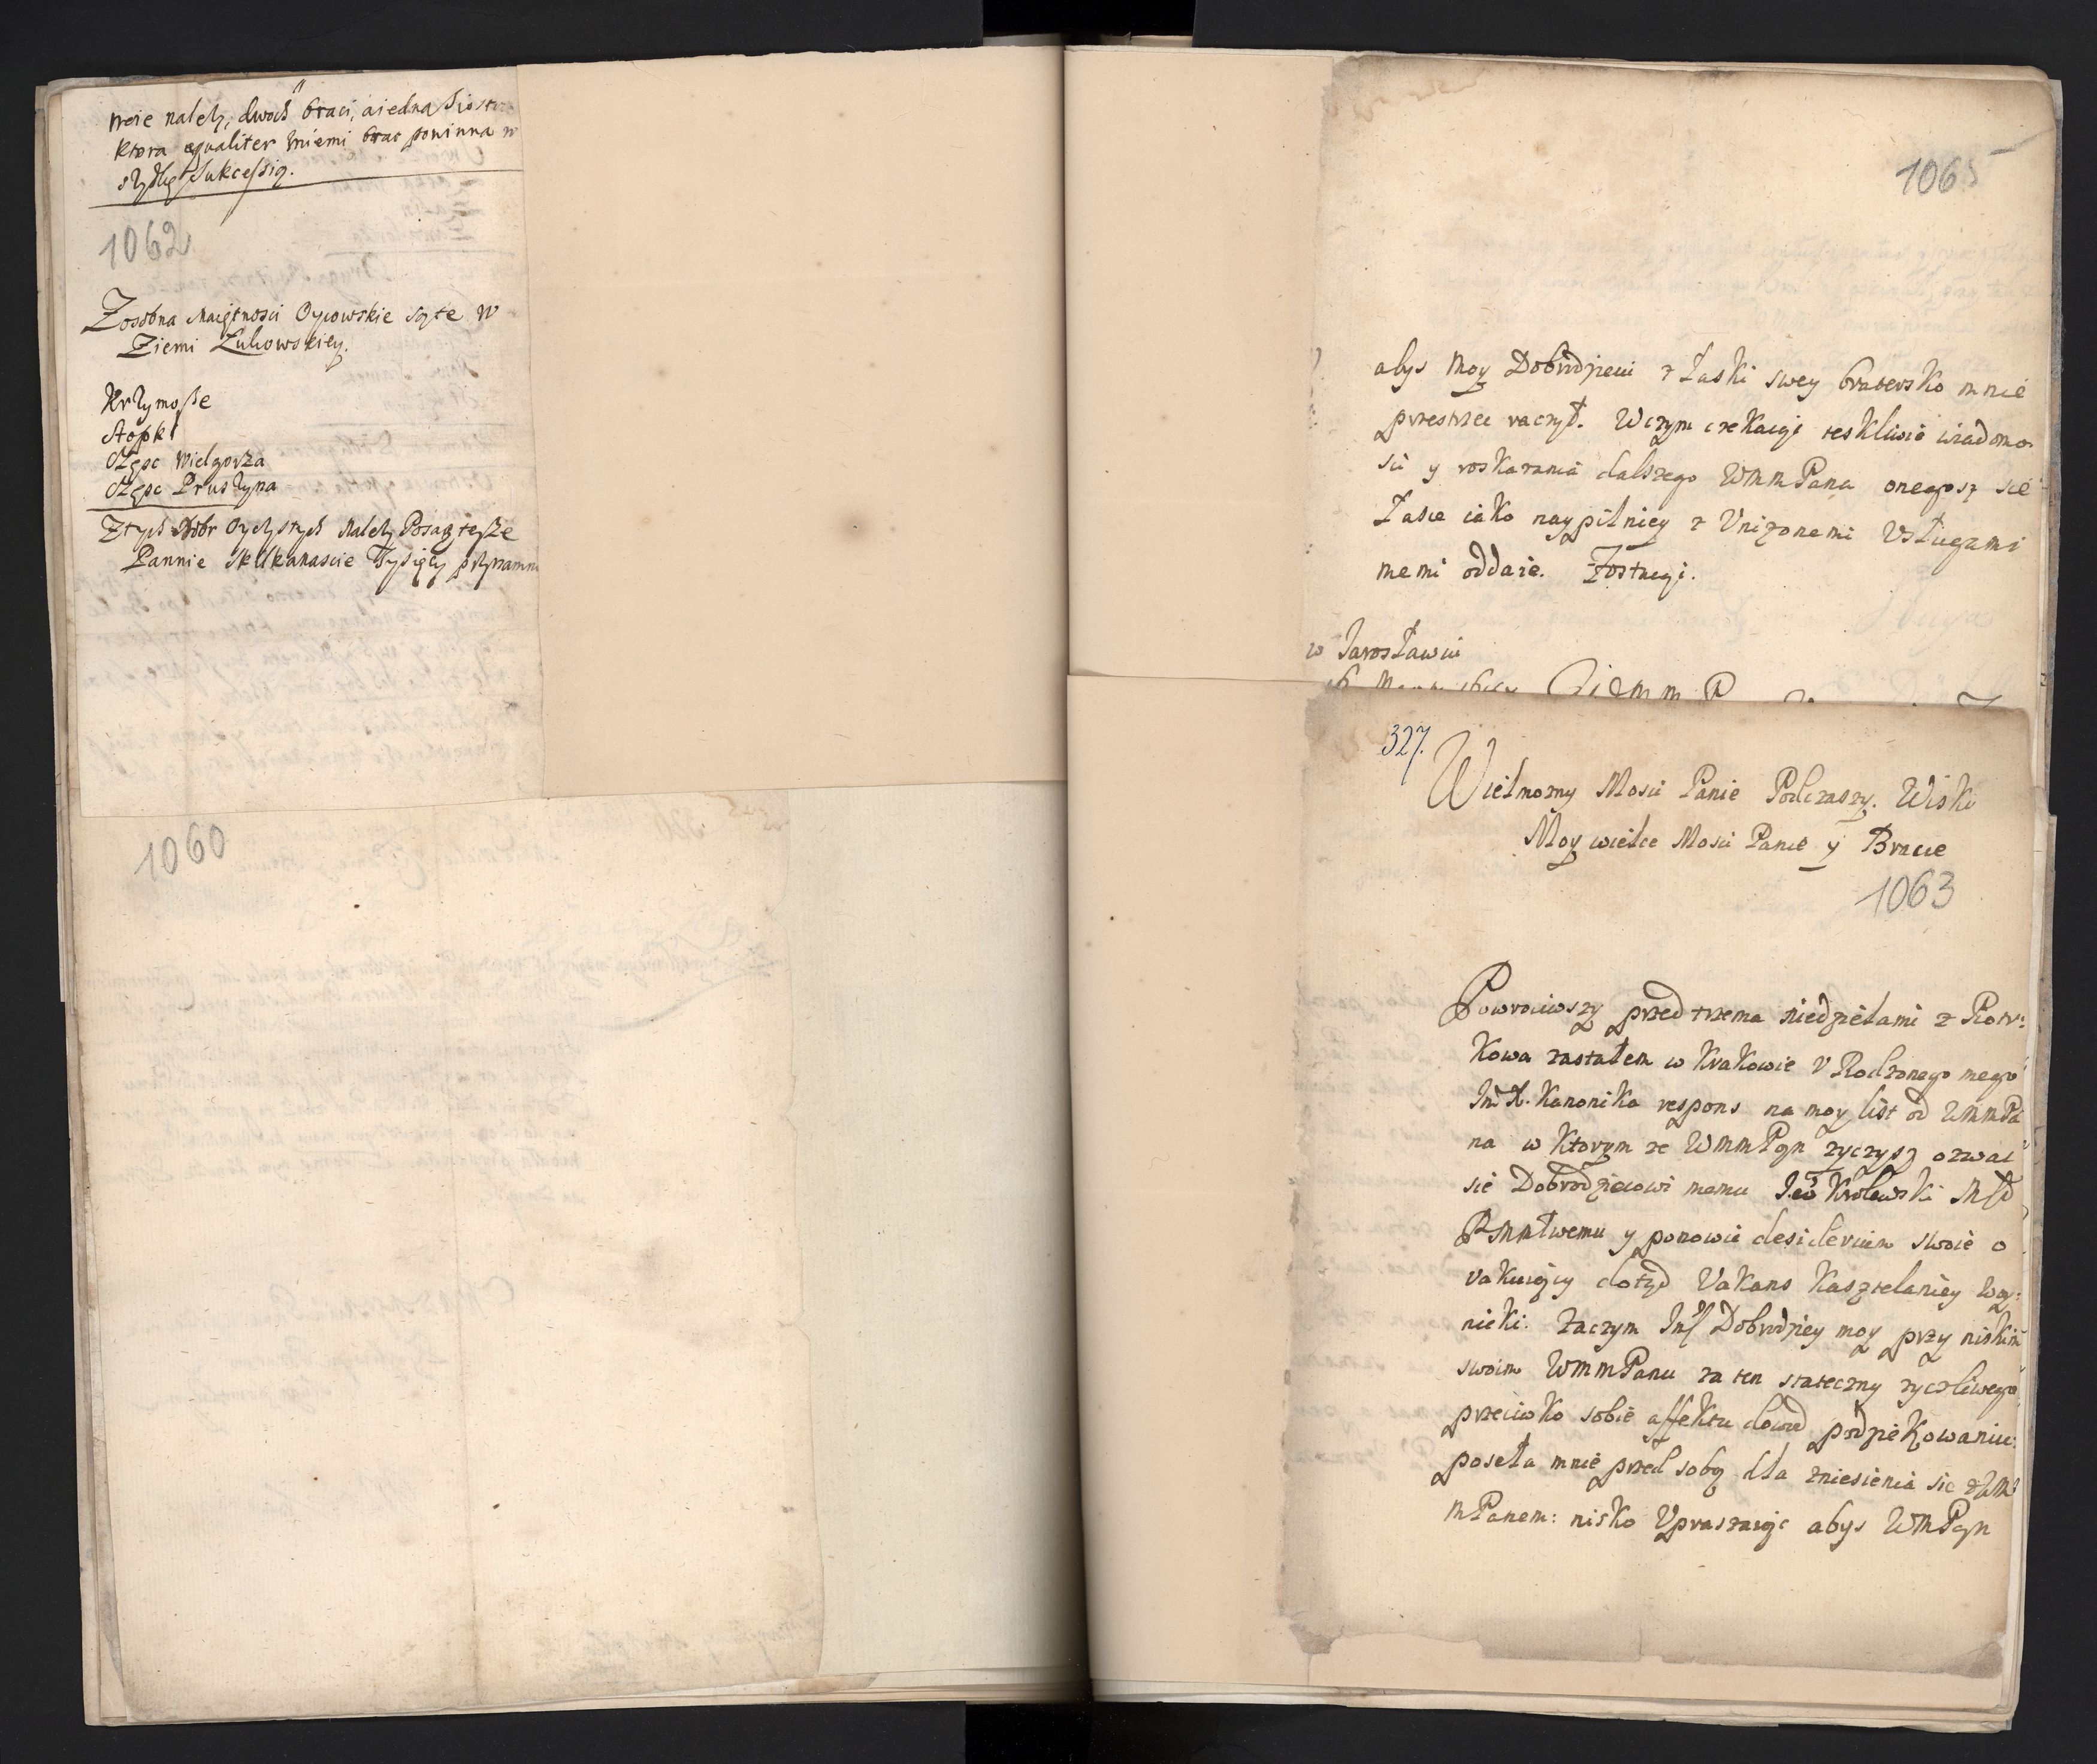 weie należy, dwoch braci, a iedna Siostra
Ktora equaliter zniemi brac powinna w
szytkę Sukcessią.
1062
Zosobna Maiętnosci Oycowskie sąte w
Ziemi Łukowskiey.
Krzymosze
Stopki
Częsc Wielgorza
Częsc Pruszyna
Ztych Dobr Oyczystych należy Posag teysze
Pannie Kilkanascie Tysięcy
1060
1065
abys Moy Dobrodzieiu z Łaski swey bratersko mnie
przestrzec raczył. Wczym czekaiąc teskliwie wiadomo
sci y roskazania dalszego WMMPana onegosz sie
Łasce iako naypilniey z Vnizonemi Vsługami
memi oddaie. Zostaiąc.
w Jarosławiu
327.
Wielmozny Mosci Panie Podczaszy. Wiski
Moy wielce Mosci Panie y Bracie
1063
Powrociwszy przed trzema niedzielami z Piotr:
Kowa zastałem w Krakowie V Rodzonego mego
Im X. Kanonika respons na moy list od WMMPa
na w Ktorym ze WMMPan zyczysz ozwac
sie Dobrodzieiowi memu Jeo Krolewski Msci
PMMłwemu y ponowic desiderium swoie o
vakuiący dotyd Vakans Kasztelaniey Woy:
nicki: Zaczym Dobrodziey moy przy niskim
swoim WMMPanu za ten stateczny zyczliwego
przeciwko sobie affektu dowod podziekowaniu:
poseła mnie przed sobą dla zniesienia sie z WM
MPanem: nisko Vpraszaiąc abys WMPan